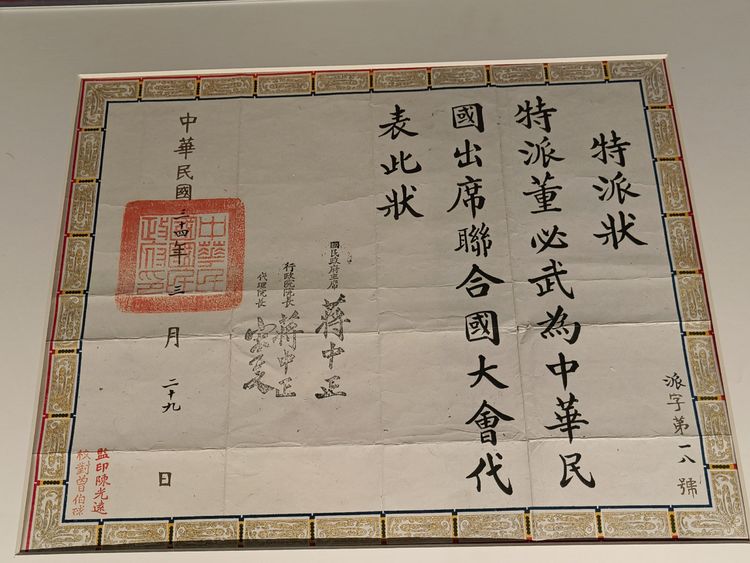 特派狀
派字第一八號
特派董必武為中華民
國出席聯合國大會代
表此狀
國民政府主席 蔣中正
行政院院長 蔣中正
代理院長 宋子文
中華民國三十四年三月二十九日
中華民國國民政府印
監印陳光遠
校對曾伯